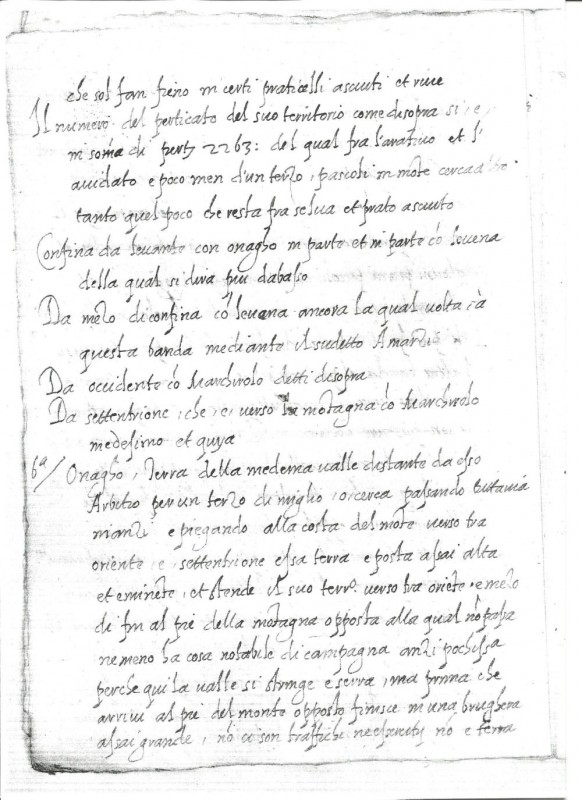 che sol fan fieno in certi praticelli asciuti et rive
Il numero del perticato del suo territorio come disopra si è,
in soma di pert 2263: del qual fra l'aratico et l'
avidato e poco men d'un terzo, pascoli in mote cerca
tanto quel poco che resta fra selua et prato asciuto
Confina da levante con onagho in parte et in parte cō levena
della qual si dira piu dabasso
Da mezo di confina cō levena ancora la qual volta
questa banda mediante il sudetto
Da occidente cō Marchirolo detti disopra
Da settentrione, che è verso la motagna cō Marchirolo
medesimo et
6a/ Onagho, Terra della medema valle distante da esso
Arbizo per un terzo di miglio, o cerca passando tuttavia
inanzi e piegando alla costa del mote verso tra
oriente e settentrione essa terra e posta assai alta
et eminēte, et stende il suo terro. verso tra oriēte e mezo
di fin al pie della motagna opposta alla qual nō passa
ne meno ha cosa notabile di campagna anzi pochissa
perche qui la valle si stringe e serra, ma prima che
arrivi al pie del monte opposto finisce in una brughera
assai grande, nō ci son traffichi ne nō e terra